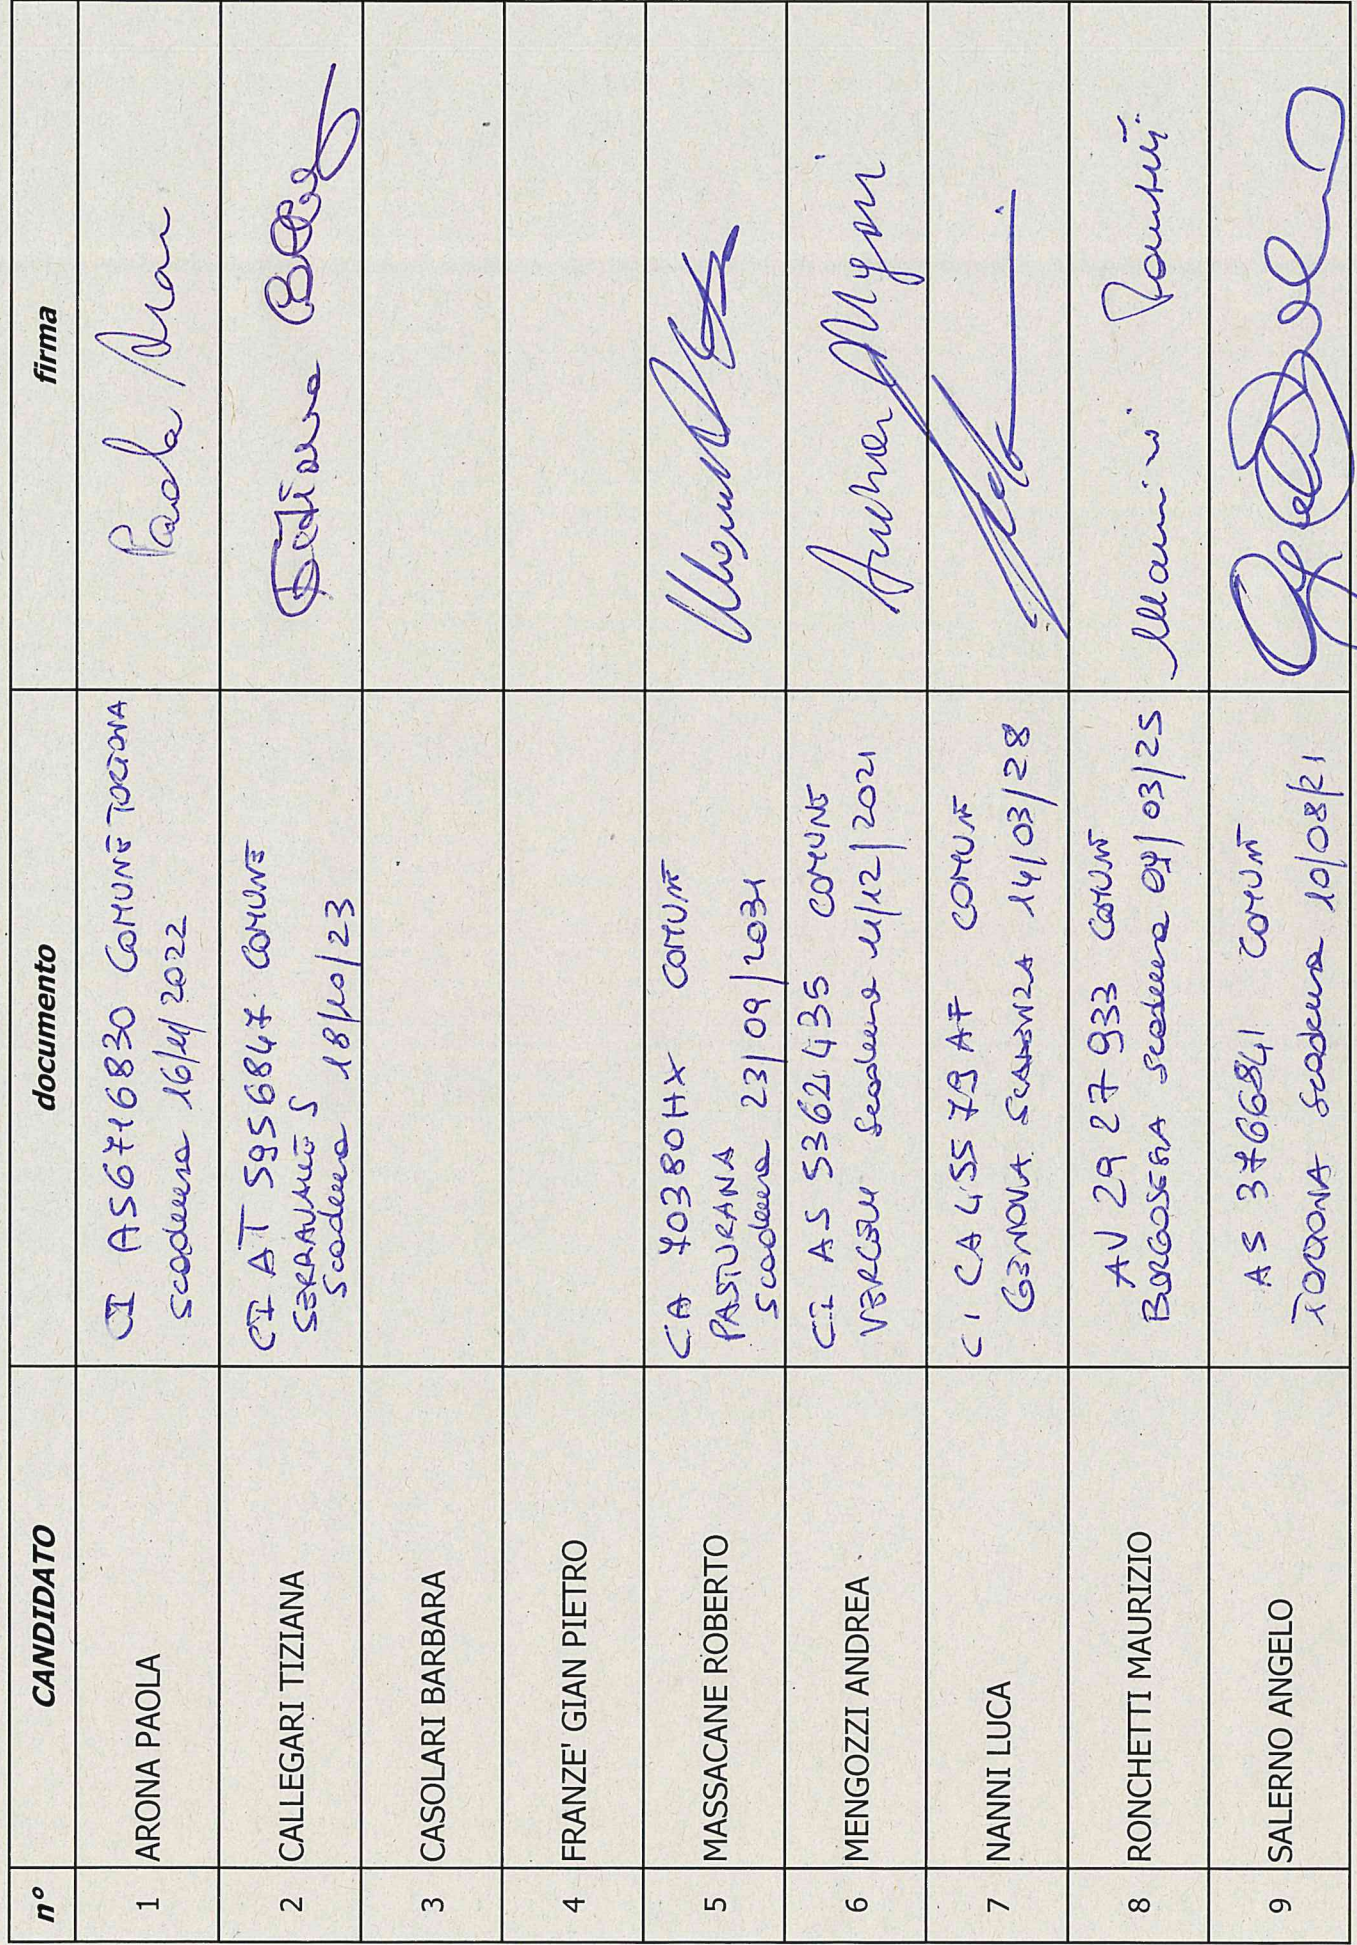 n° CANDIDATO documento firma
1 ARONA PAOLA CI AS6716830 COMUNE TORTONA Paola Arona
scadenza 16/11/2022
2 CALLEGARI TIZIANA CI AT 5956847 COMUNE Tiziana
SERRAVALLE S
scadenza 18/10/23
3 CASOLARI BARBARA
4 FRANZE' GIAN PIETRO
5 MASSACANE ROBERTO CA 70380HX COMUNE
PASTURANA
scadenza 23/09/2031
6 MENGOZZI ANDREA CI AS 5362435 COMUNE Andrea
VERCELLI scadenza 11/12/2021
7 NANNI LUCA CI CA 45579 AF COMUNE
GENOVA SCADENZA 14/03/28
8 RONCHETTI MAURIZIO AV 2927933 COMUNE
BORGOSESIA scadenza 04/03/25
9 SALERNO ANGELO AS 3766841 COMUNE
TORTONA scadenza 10/08/21